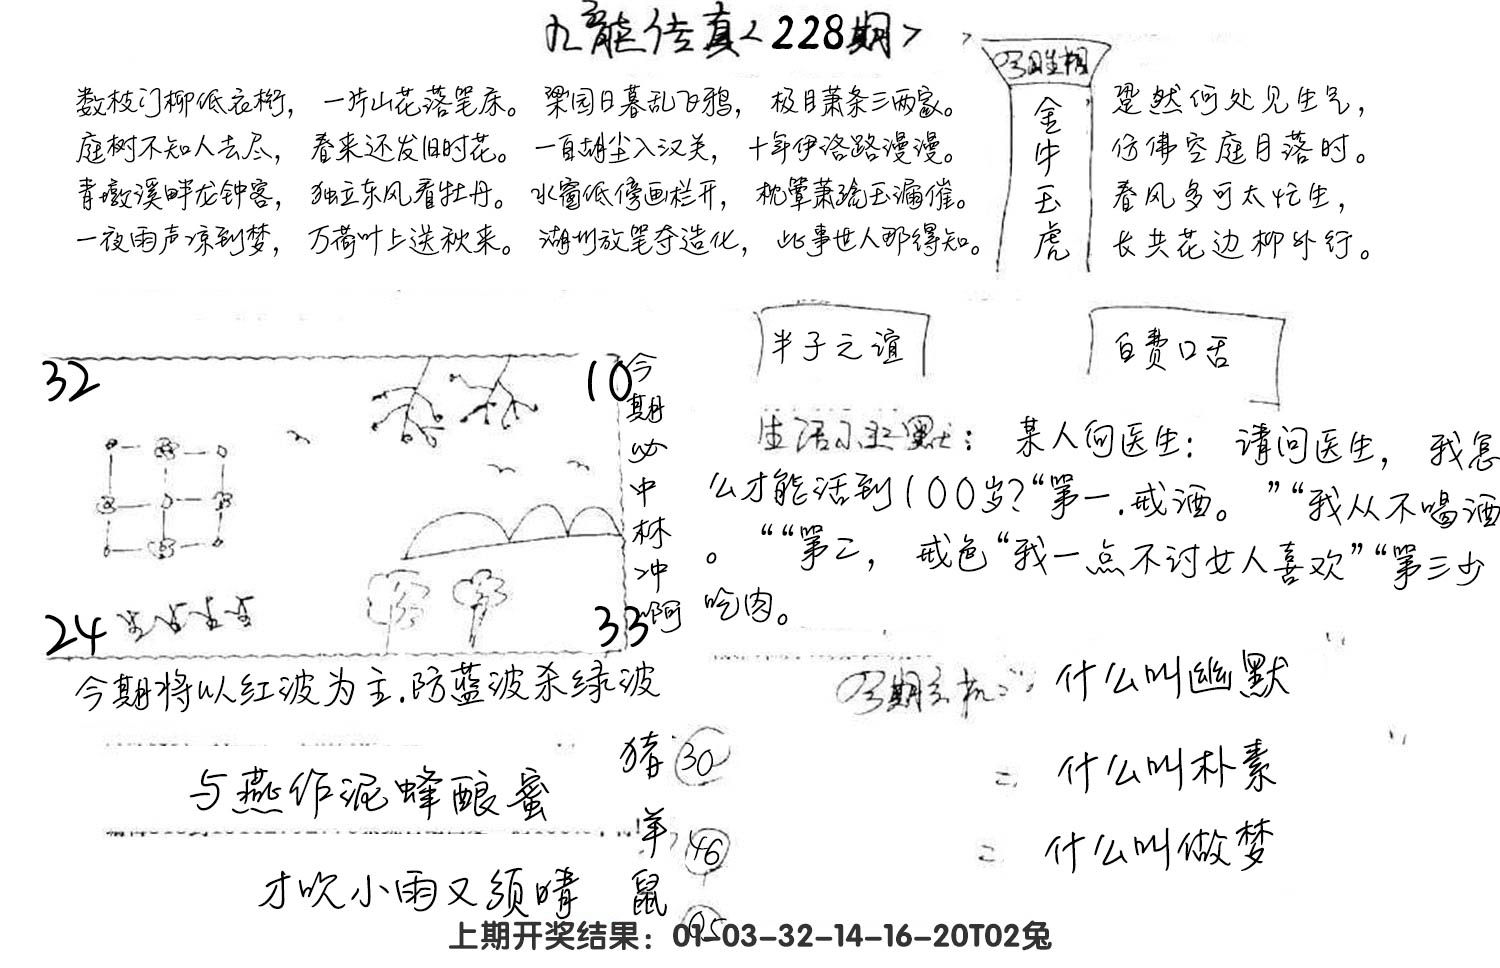 九龙传真<228期>
今日生相
金牛玉虎
数枝门柳低衣桁，一片山花落笔床。梁园日暮乱飞鸦，极目萧条三两家。
庭树不知人去尽，春来还发旧时花。一自胡尘入汉关，十年伊洛路漫漫。
青墩溪畔龙钟客，独立东风看牡丹。水窗低傍画栏开，枕簟萧疏玉漏催。
一夜雨声凉到梦，万荷叶上送秋来。湖州放笔夺造化，此事世人那得知。
跫然何处见生气，
仿佛空庭月落时。
春风多可太忙生，
长共花边柳外行。
半子之谊
白费口舌
32
10
24
33
今期必中林冲啊
生活小幽默：某人问医生：请问医生，我怎
么才能活到100岁？“第一.戒酒。”“我从不喝酒
。““第二，戒色“我一点不讨女人喜欢”“第三少
吃肉。
今期将以红波为主.防蓝波杀绿波
今期玄机一：什么叫幽默
二 什么叫朴素
二 什么叫做梦
与燕作泥蜂酿蜜
才吹小雨又须晴
猪 30
羊 46
鼠 05
上期开奖结果：01-03-32-14-16-20T02兔